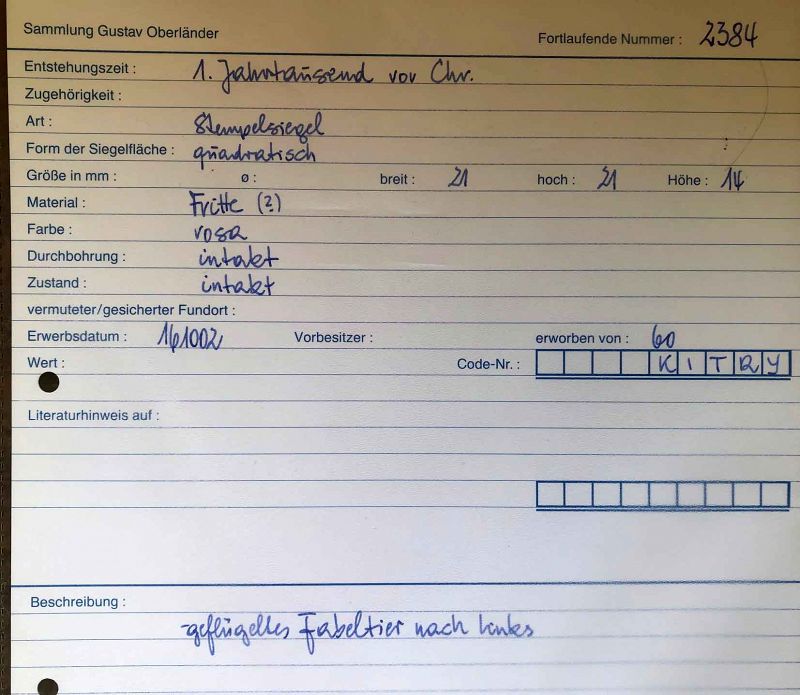 Sammlung Gustav Oberländer
Fortlaufende Nummer : 2384
Entstehungszeit : 1. Jahrtausend vor Chr.
Zugehörigkeit :
Art : Stempelsiegel
Form der Siegelfläche : quadratisch
Größe in mm : ø : breit : 21 hoch : 21 Höhe : 14
Material : Fritte (?)
Farbe : rosa
Durchbohrung : intakt
Zustand : intakt
vermuteter/gesicherter Fundort :
Erwerbsdatum : 161002 Vorbesitzer : erworben von : 60
Wert : Code-Nr. : KITRY
Literaturhinweis auf :
Beschreibung :
geflügeltes Fabeltier nach links